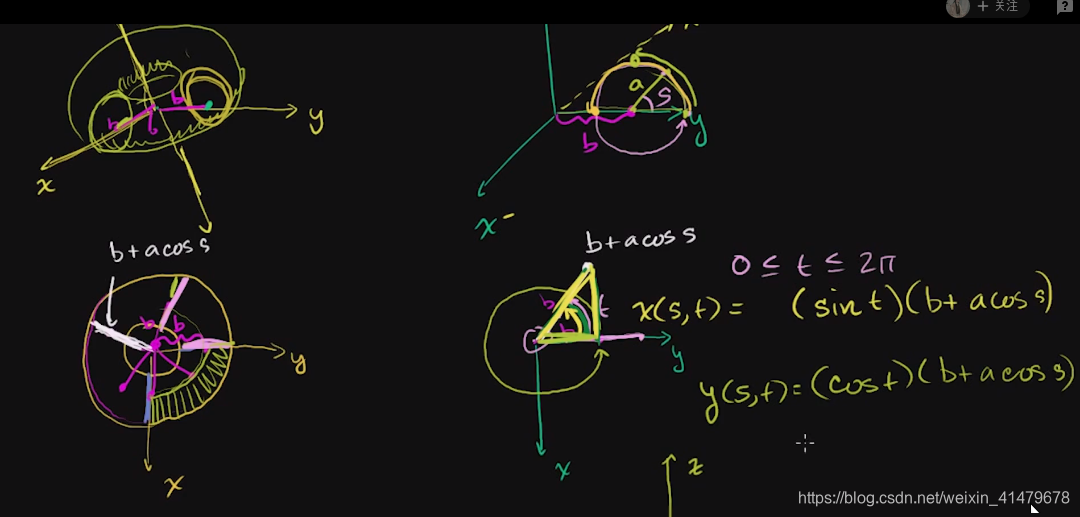 + 关注
y
b
b
b
x
a
s
b
y
x
b+acos s
b
b
y
x
b+acos s
0 ≤ t ≤ 2π
b
t
b
x(s,t) = (sin t)(b+acos s)
y
y(s,t)=(cos t)(b+acos s)
x
z
https://blog.csdn.net/weixin_41479678